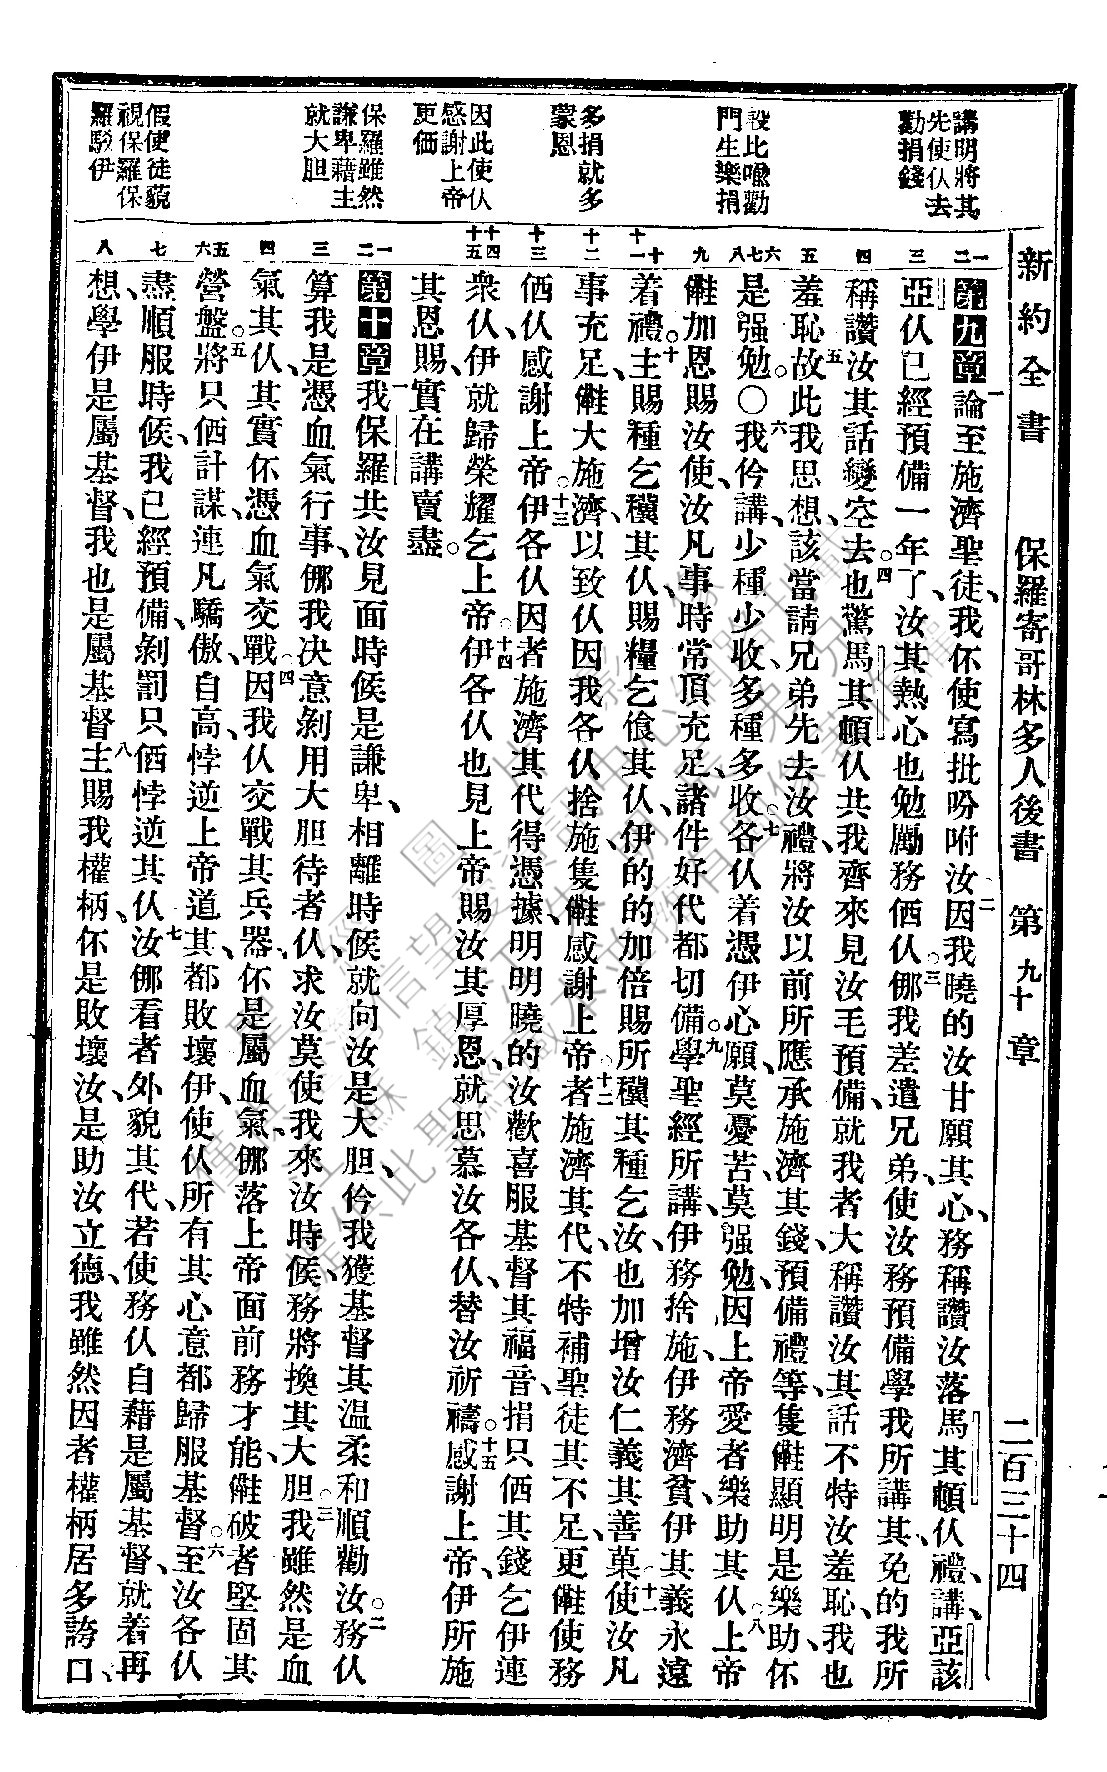 新約全書　保羅寄哥林多人後書　第九十章　二百三十四
講明將其
先使仫去
勸捐錢
設比喩勸
門生樂捐
多捐就多
蒙恩
因此使仫
感謝上帝
更価
保羅雖然
謙卑藉主
就大胆
假使徒藐
視保羅保
羅駁伊
一
二
三
四
五
六
七
八
九
十
十一
十二
十三
十四
十五
一
二
三
四
五
六
七
八
第九章一論至施濟聖徒、我伓使寫批吩咐汝、二因我曉的汝甘願其心、務稱讚汝落馬其頓仫禮、講、亞該
亞仫已經預備一年了、汝其熱心也勉厲務価仫。三㑚我差遣兄弟、使汝務預備學我所講其、免的我所
稱讚汝其話變空去也。四驚馬其頓仫共我齊來見汝毛預備、就我者大稱讚汝其話、不特汝羞恥、我也
羞恥。五故此我思想、該當請兄弟先去汝禮、將汝以前所應承施濟其錢、預備禮等、隻㒰顯明是樂助、伓
是强勉。〇六我伶講、少種少收、多種多收。七各仫着憑伊心願、莫憂苦、莫强勉、因上帝愛者樂助其仫。八上帝
㒰加恩賜汝、使汝凡事時常頂充足、諸件好代都切備。九學聖經所講、伊務捨施、伊務濟貧、伊其義永遠
着禮。十主賜種乞穬其仫、賜糧乞飡其仫、伊的的加倍賜所穬其種乞汝、也加增汝仁義其善菓。十一使汝凡
事充足、㒰大施濟、以致仫因我各仫捨施、隻㒰感謝上帝。十二者施濟其代、不特補聖徒其不足、更㒰使務
価仫感謝上帝。十三伊各仫因者施濟其代得憑據、明明曉的汝歡喜服基督其福音、捐只価其錢乞伊連
衆仫、伊就歸榮耀乞上帝。十四伊各仫也見上帝賜汝其厚恩、就思慕汝各仫、替汝祈禱。十五感謝上帝、伊所施
其恩賜、實在講賣盡。
第十章一我保羅共汝見面時候是謙卑、相離時候就向汝是大胆、伶我獲基督其温柔和順勸汝。二務仫
算我是憑血氣行事、㑚我决意剝用大胆待者仫、求汝莫使我來汝時候、務將換其大胆。三我雖然是血
氣其仫、其實伓憑血氣交戰。四因我仫交戰其兵器、伓是屬血氣、㑚落上帝面前務才能、㒰破者堅固其
營盤。五將只価計謀、連凡驕傲自高悖逆上帝道其、都敗壞伊、使仫所有其心意都歸服基督。六至汝各仫
盡順服時候、我已經預備、剝罰只価悖逆其仫。七汝㑚看者外貌其代、若使務仫自藉是屬基督、就着再
想、學伊是屬基督、我也是屬基督。八主賜我權柄、伓是敗壞汝、是助汝立德、我雖然因者權柄居多誇口、